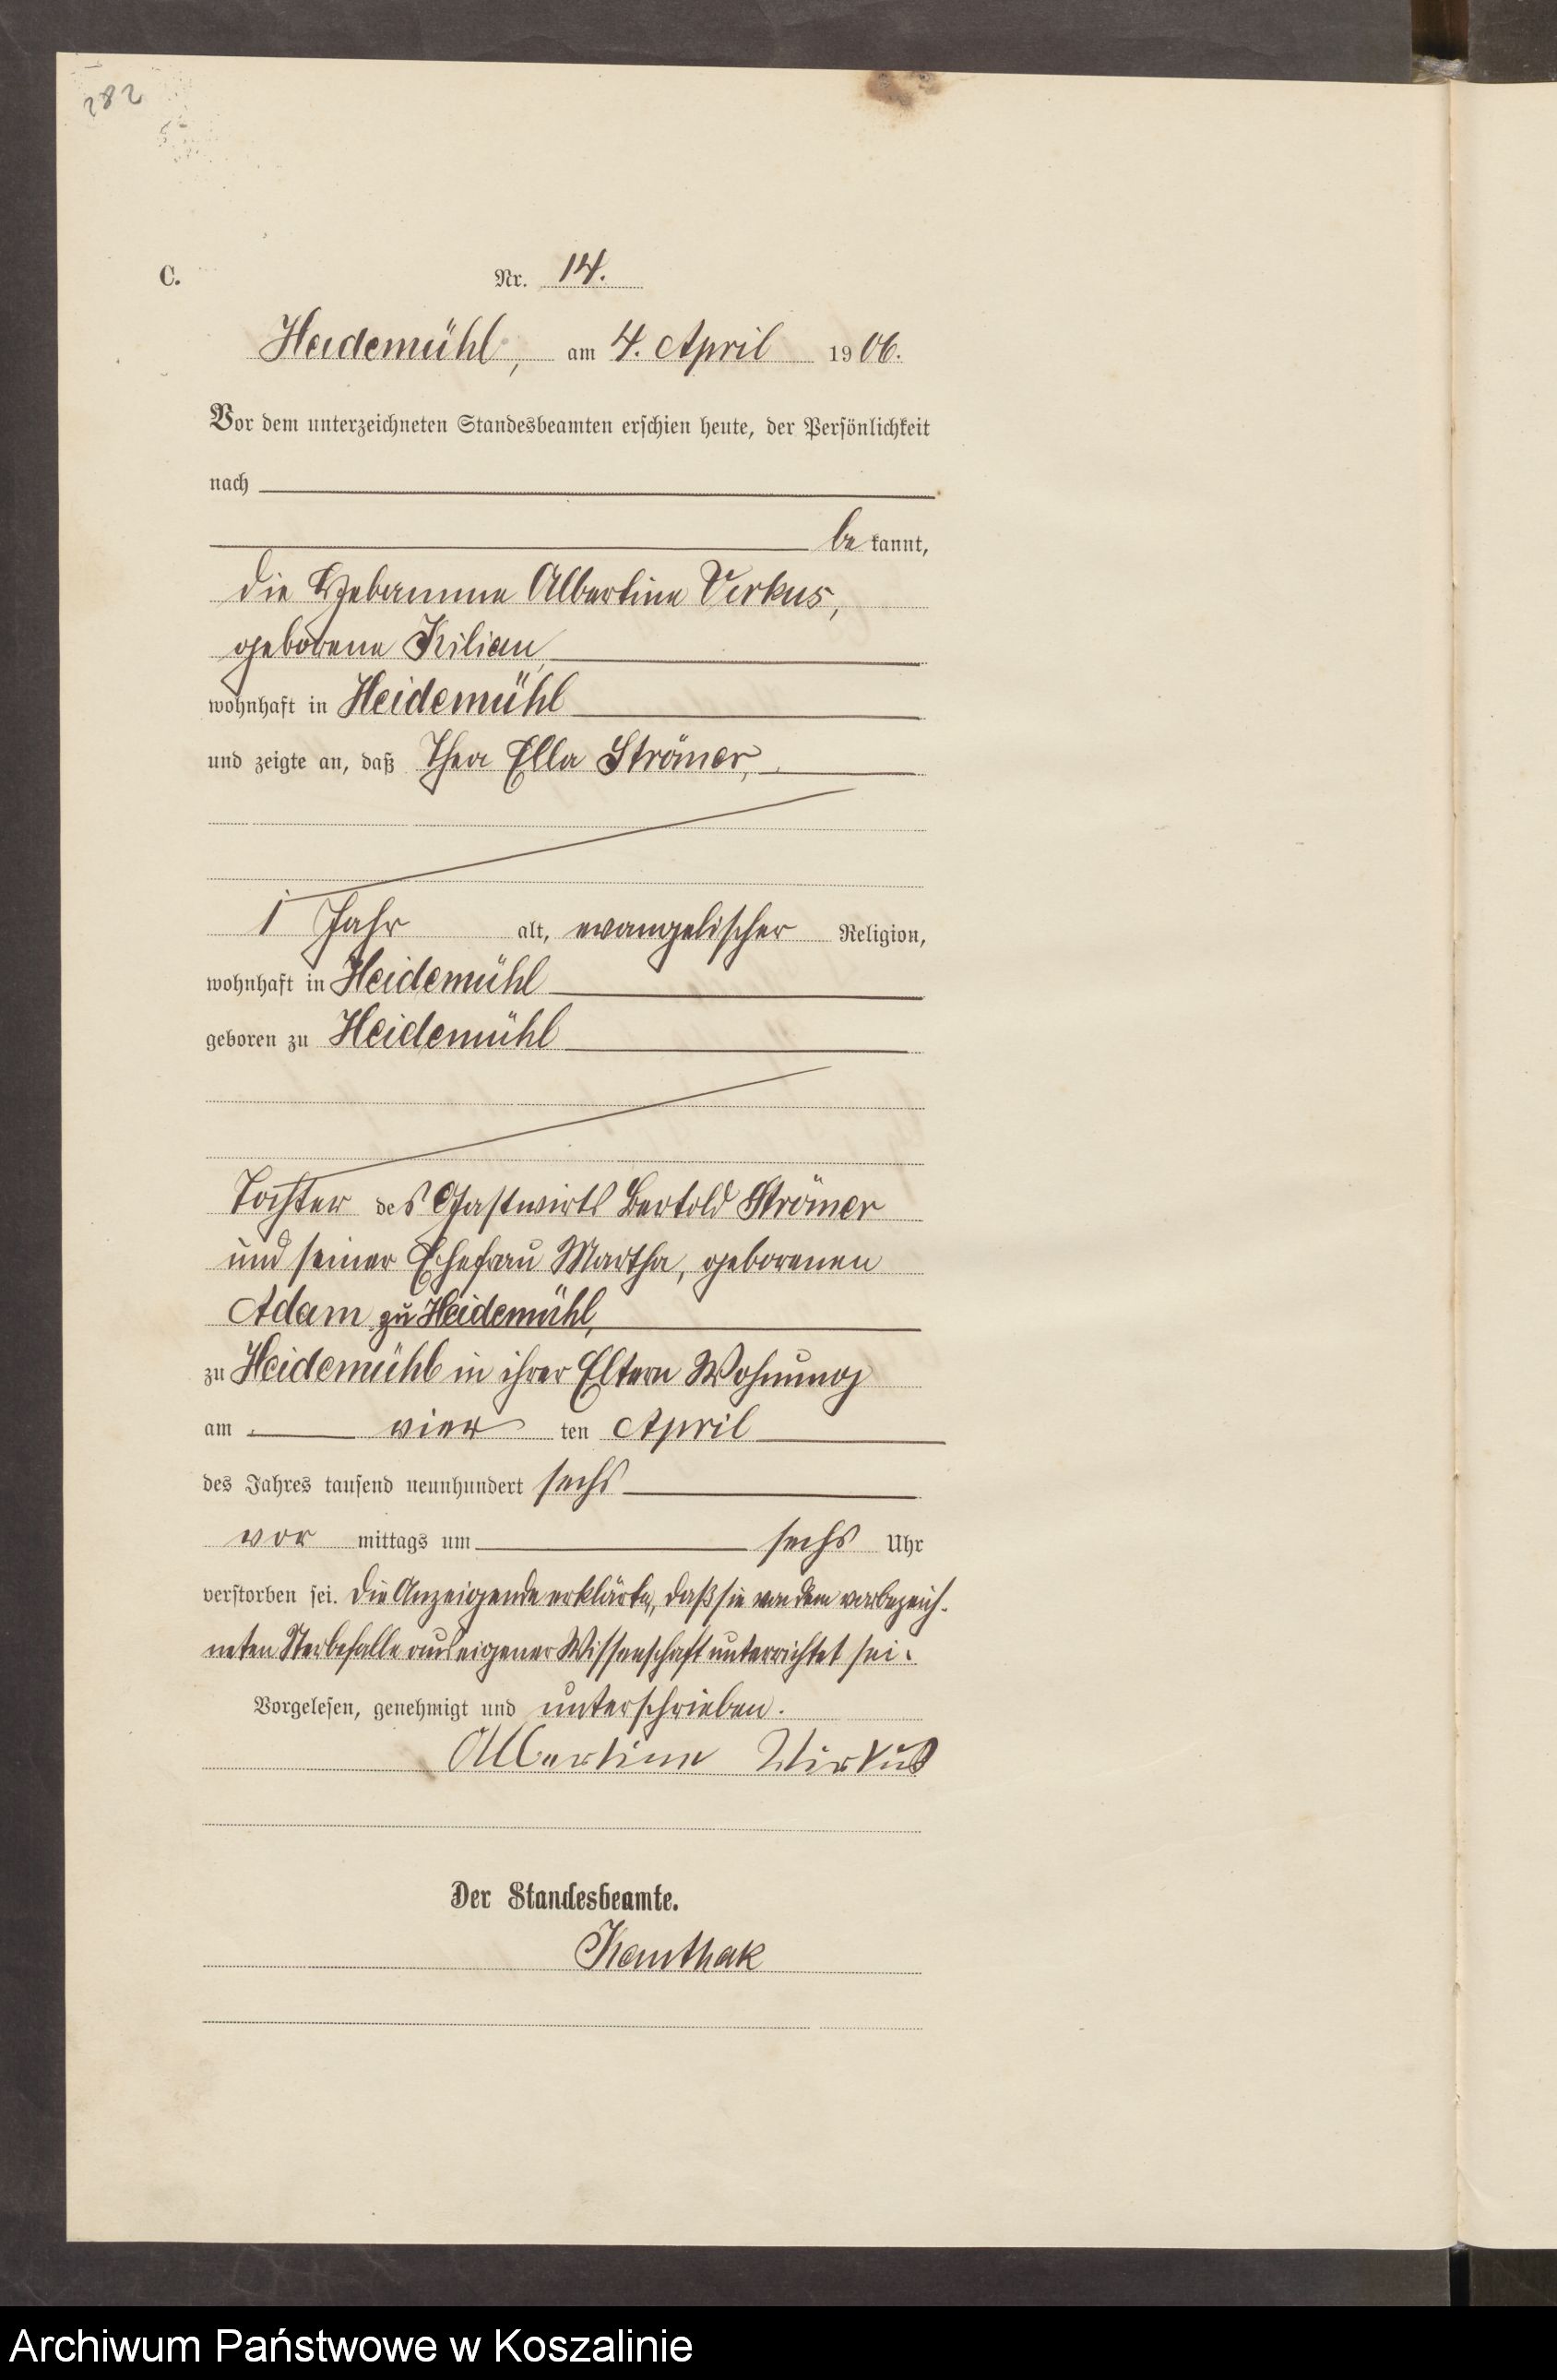 282
C.
Nr. 14.
Heidemühl, am 4. April 1906.
Vor dem unterzeichneten Standesbeamten erschien heute, der Persönlichkeit
nach
be kannt,
die Hebamme Albertine Virkus,
geborene Kilian,
wohnhaft in Heidemühl
und zeigte an, daß Thea Ella Strömer,
1 Jahr alt, evangelischer Religion,
wohnhaft in Heidemühl
geboren zu Heidemühl
Tochter des Gastwirts Bertold Strömer
und seiner Ehefrau Martha, geborenen
Adam zu Heidemühl,
zu Heidemühl in ihrer Eltern Wohnung
am vier ten April
des Jahres tausend neunhundert sechs
vor mittags um sechs Uhr
verstorben sei. Die Anzeigende erklärte, daß sie von dem vorbezeich-
neten Sterbefalle aus eigener Wissenschaft unterrichtet sei.
Vorgelesen, genehmigt und unterschrieben.
Albertine Wirkus
Der Standesbeamte.
Kamthak
Archiwum Państwowe w Koszalinie